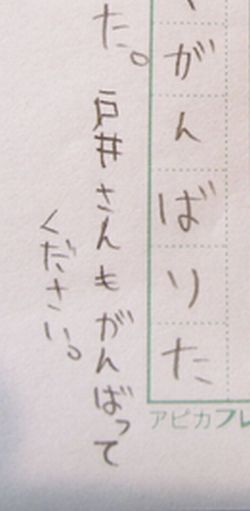 がんばりた
た。戸井さんもがんばって
ください。
アピカフレ